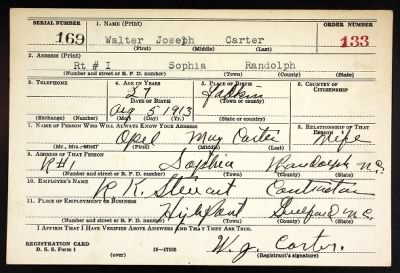 SERIAL NUMBER 1. NAME (Print) ORDER NUMBER
169 Walter Joseph Carter 133
(First) (Middle) (Last)
2. ADDRESS (Print)
Rt # I Sophia Randolph
(Number and street or R. F. D. number) (Town) (County) (State)
3. TELEPHONE 4. AGE IN YEARS 5. PLACE OF BIRTH 6. COUNTRY OF CITIZENSHIP
27 Yadkin
DATE OF BIRTH (Town or county)
Aug 5 1913
(Exchange) (Number) (Mo.) (Day) (Yr.) (State or country)
7. NAME OF PERSON WHO WILL ALWAYS KNOW YOUR ADDRESS 8. RELATIONSHIP OF THAT PERSON
Opel May Carter Wife
(Mr., Mrs., Miss) (First) (Middle) (Last)
9. ADDRESS OF THAT PERSON
R#1 Sophia Randolph N.C.
(Number and street or R. F. D. number) (Town) (County) (State)
10. EMPLOYER'S NAME
R. K. Stewart Contractor
11. PLACE OF EMPLOYMENT OR BUSINESS
High Point Guilford N.C.
(Number and street or R. F. D. number) (Town) (County) (State)
I AFFIRM THAT I HAVE VERIFIED ABOVE ANSWERS AND THAT THEY ARE TRUE.
REGISTRATION CARD
D. S. S. Form 1 16—17500 W. J. Carter.
(over) (Registrant's signature)